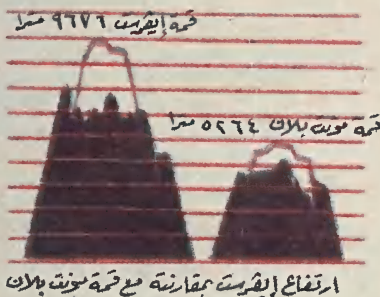 قمة إيفرست ٩٦٧٦ مترا
قمة مونت بلان ٥٢٦٤ مترا
ارتفاع إيفرست بمقارنة مع قمة مونت بلان